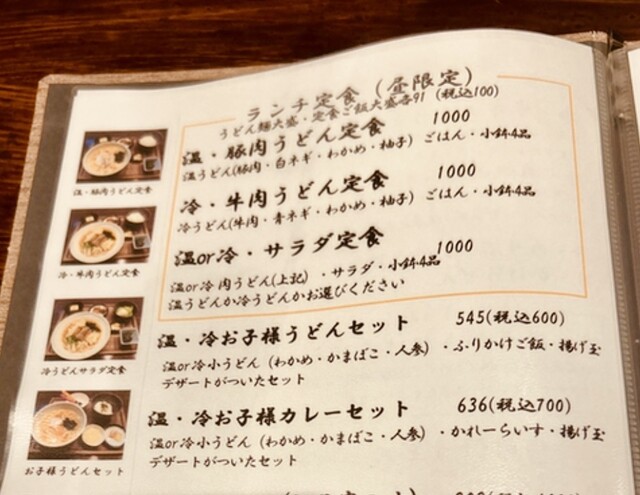 ランチ定食（昼限定）
うどん麺大盛・定食ご飯大盛各91（税込100）
温・豚肉うどん定食 1000
温うどん(豚肉・白ネギ・わかめ・柚子） ごはん・小鉢4品
冷・牛肉うどん定食 1000
冷うどん(牛肉・青ネギ・わかめ・柚子） ごはん・小鉢4品
温or冷・サラダ定食 1000
温or冷 肉うどん(上記) ・サラダ・小鉢4品
温うどんか冷うどんかお選びください
温・冷お子様うどんセット 545(税込600)
温or冷小うどん（わかめ・かまぼこ・人参）・ふりかけご飯・揚げ玉
デザートがついたセット
温・冷お子様カレーセット 636(税込700)
温or冷小うどん（わかめ・かまぼこ・人参）・かれーらいす・揚げ玉
デザートがついたセット
温・豚肉うどん定食
冷・牛肉うどん定食
冷うどんサラダ定食
お子様うどんセット